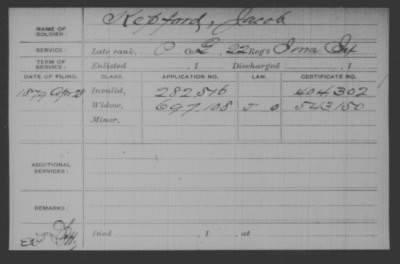 NAME OF SOLDIER: Kepford, Jacob
SERVICE: Late rank, P Co. G, 22 Reg't Iowa Inf
TERM OF SERVICE: Enlisted , 1 Discharged , 1
DATE OF FILING. CLASS. APPLICATION NO. LAW. CERTIFICATE NO.
1879 Apr 29 Invalid, 282.516 404.302
Widow, 697.108 543.150
Minor,
ADDITIONAL SERVICES:
REMARKS:
Died , 1 , at